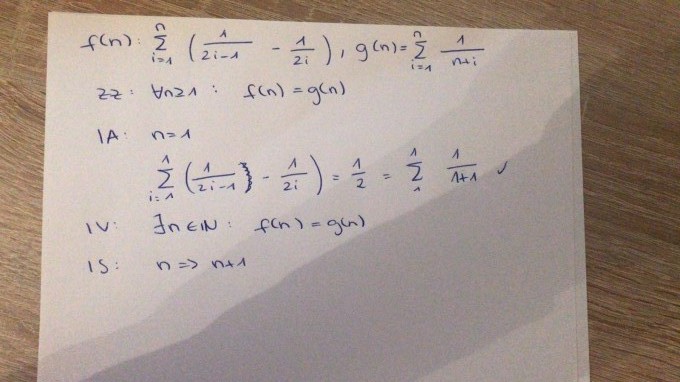 f(n): ∑_{i=1}^{n} (1/(2i-1) - 1/(2i)), g(n)= ∑_{i=1}^{n} 1/(n+i)
ZZ: ∀n≥1: f(n)=g(n)
IA: n=1
∑_{i=1}^{1} (1/(2i-1) - 1/(2i)) = 1/2 = ∑_{1}^{1} 1/(1+1) ✓
IV: ∃n∈ℕ: f(n)=g(n)
IS: n => n+1